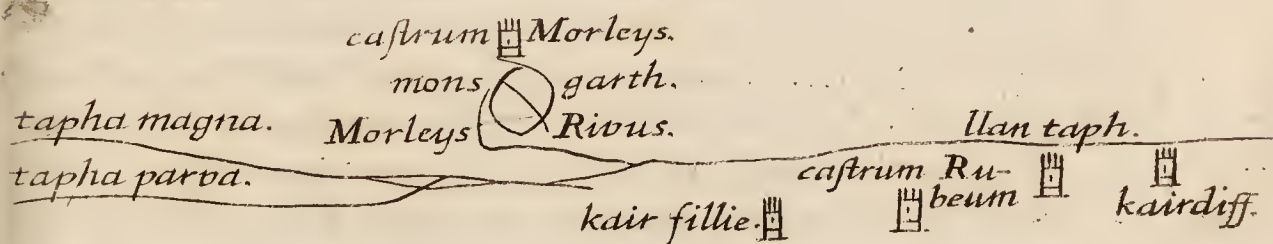 caſtrum Morleys.
mons garth.
tapha magna. Morleys Rivus. llan taph.
tapha parva. caſtrum Ru-
beum kairdiff.
kair fillie.